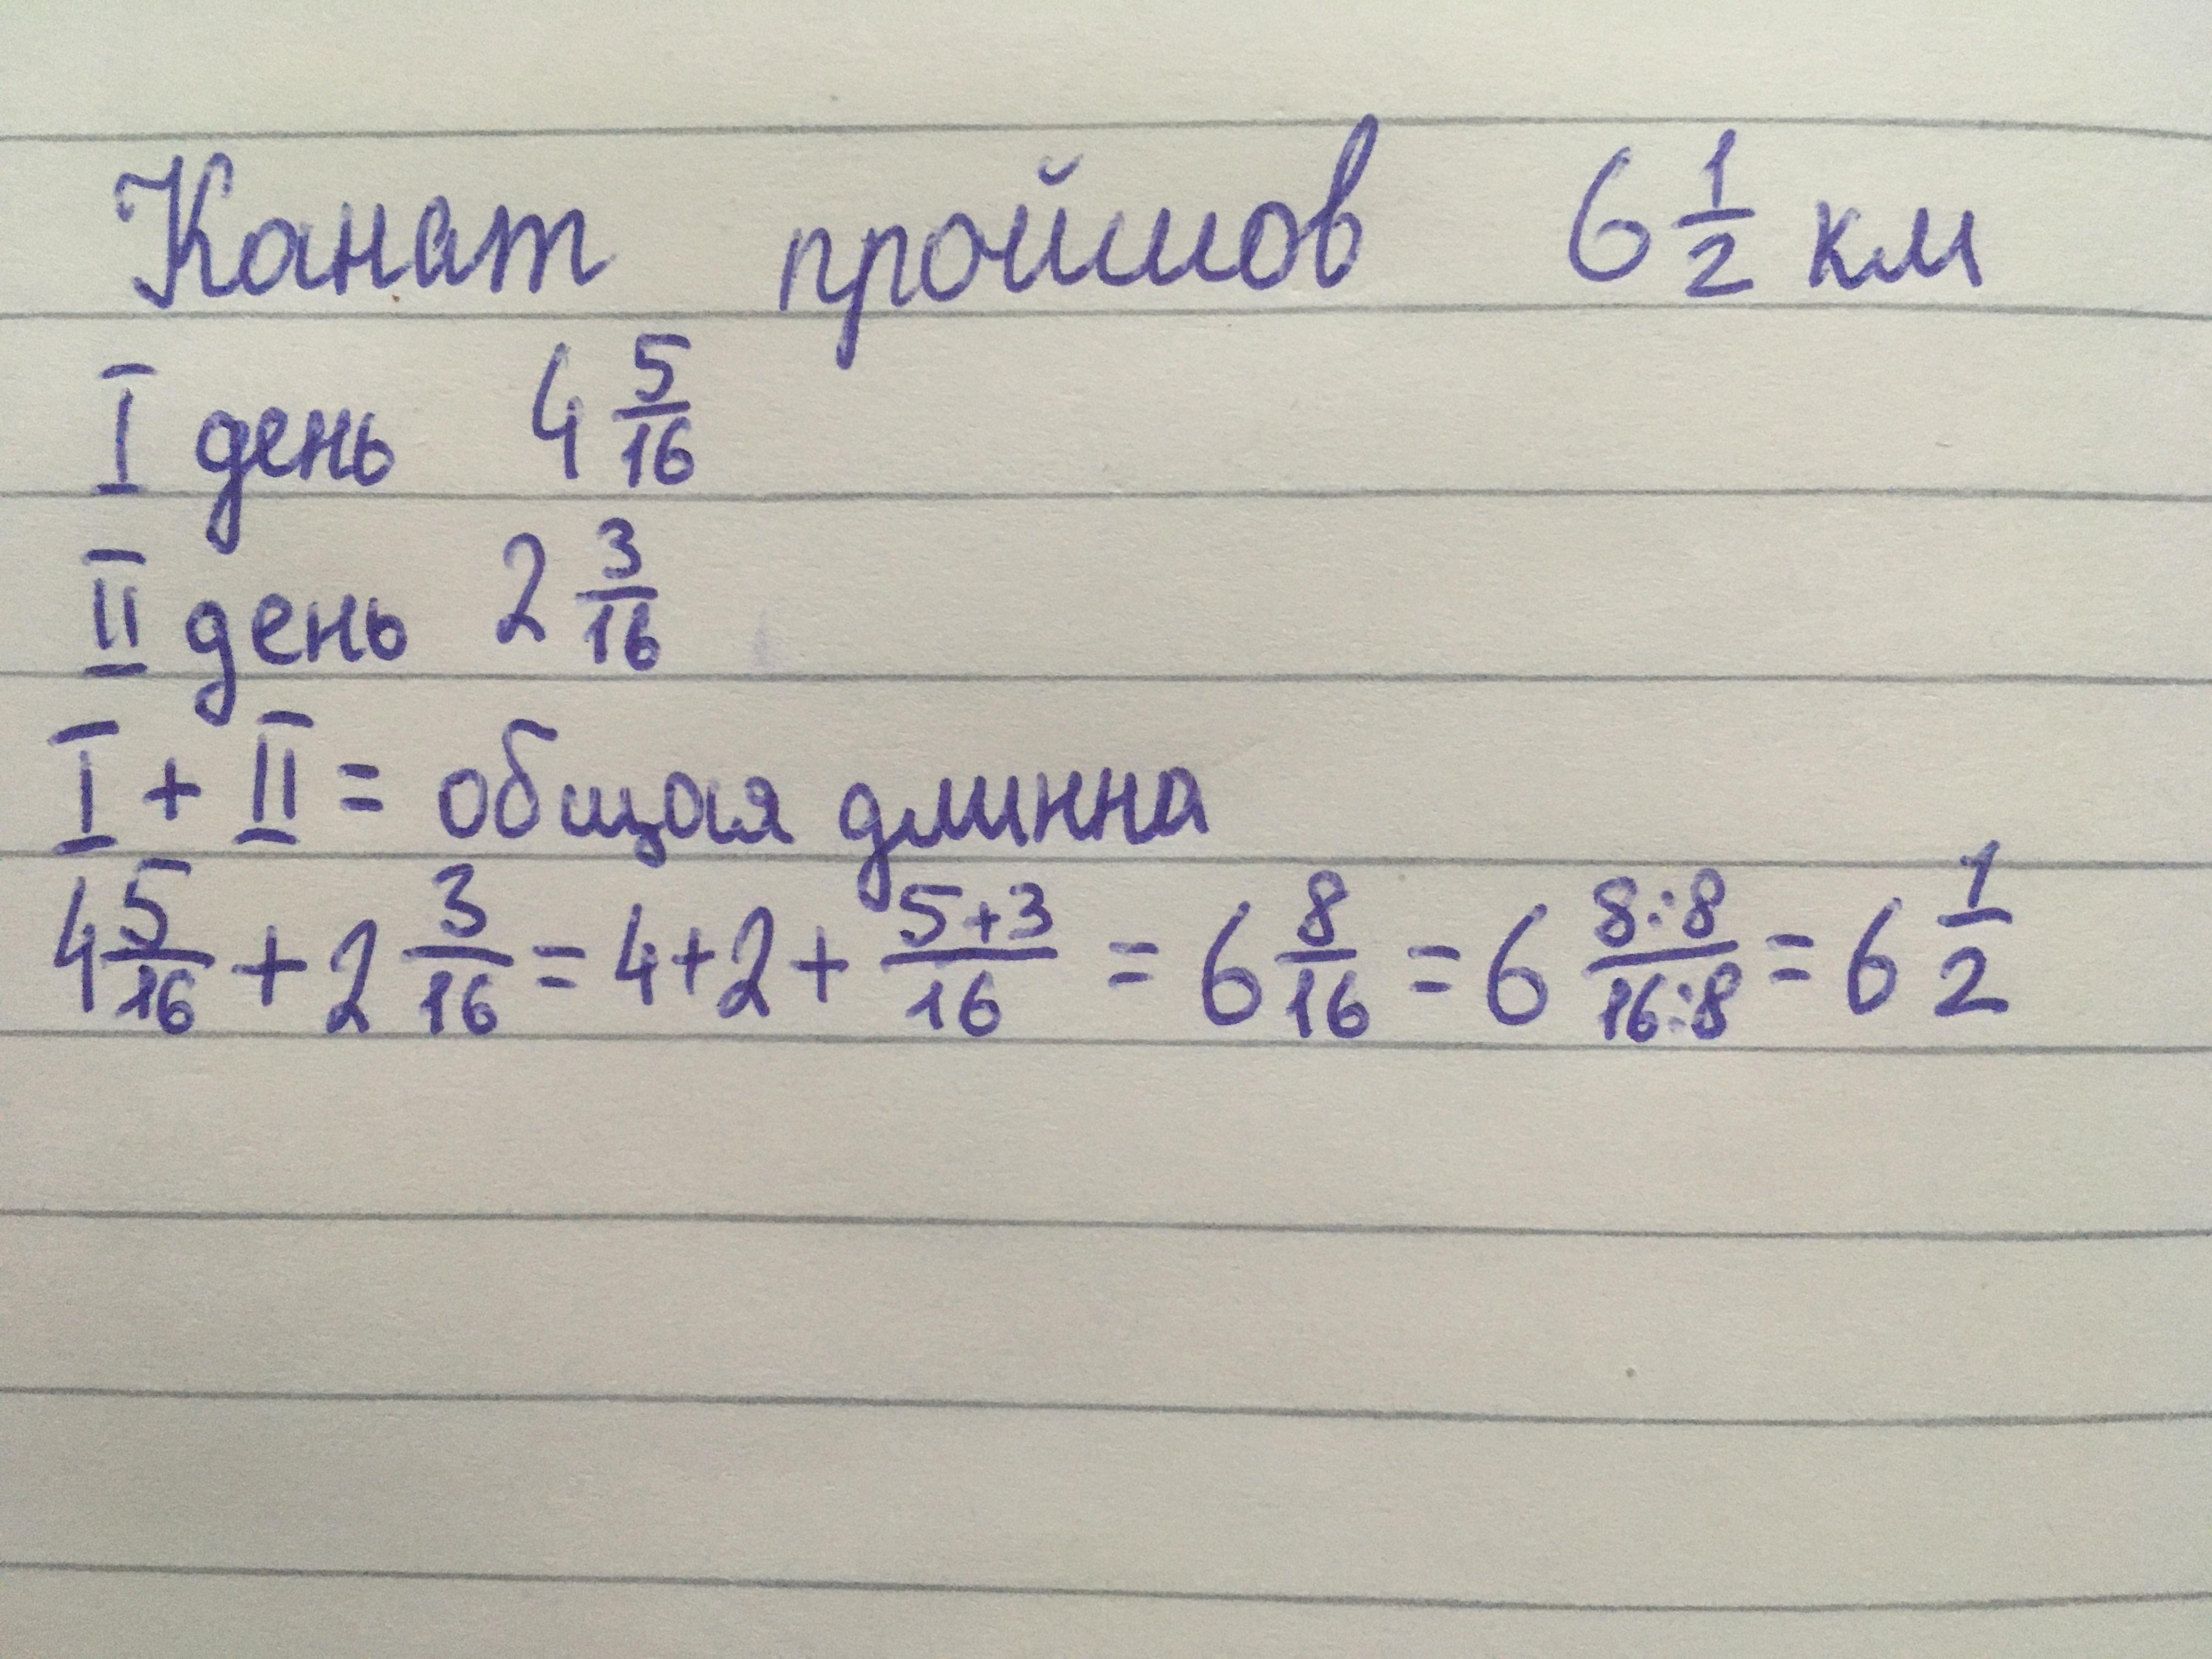 Канат пройшов 6 1/2 км
I день 4 5/16
II день 2 3/16
I + II = общая длинна
4 5/16 + 2 3/16 = 4+2+ 5+3/16 = 6 8/16 = 6 8:8/16:8 = 6 1/2